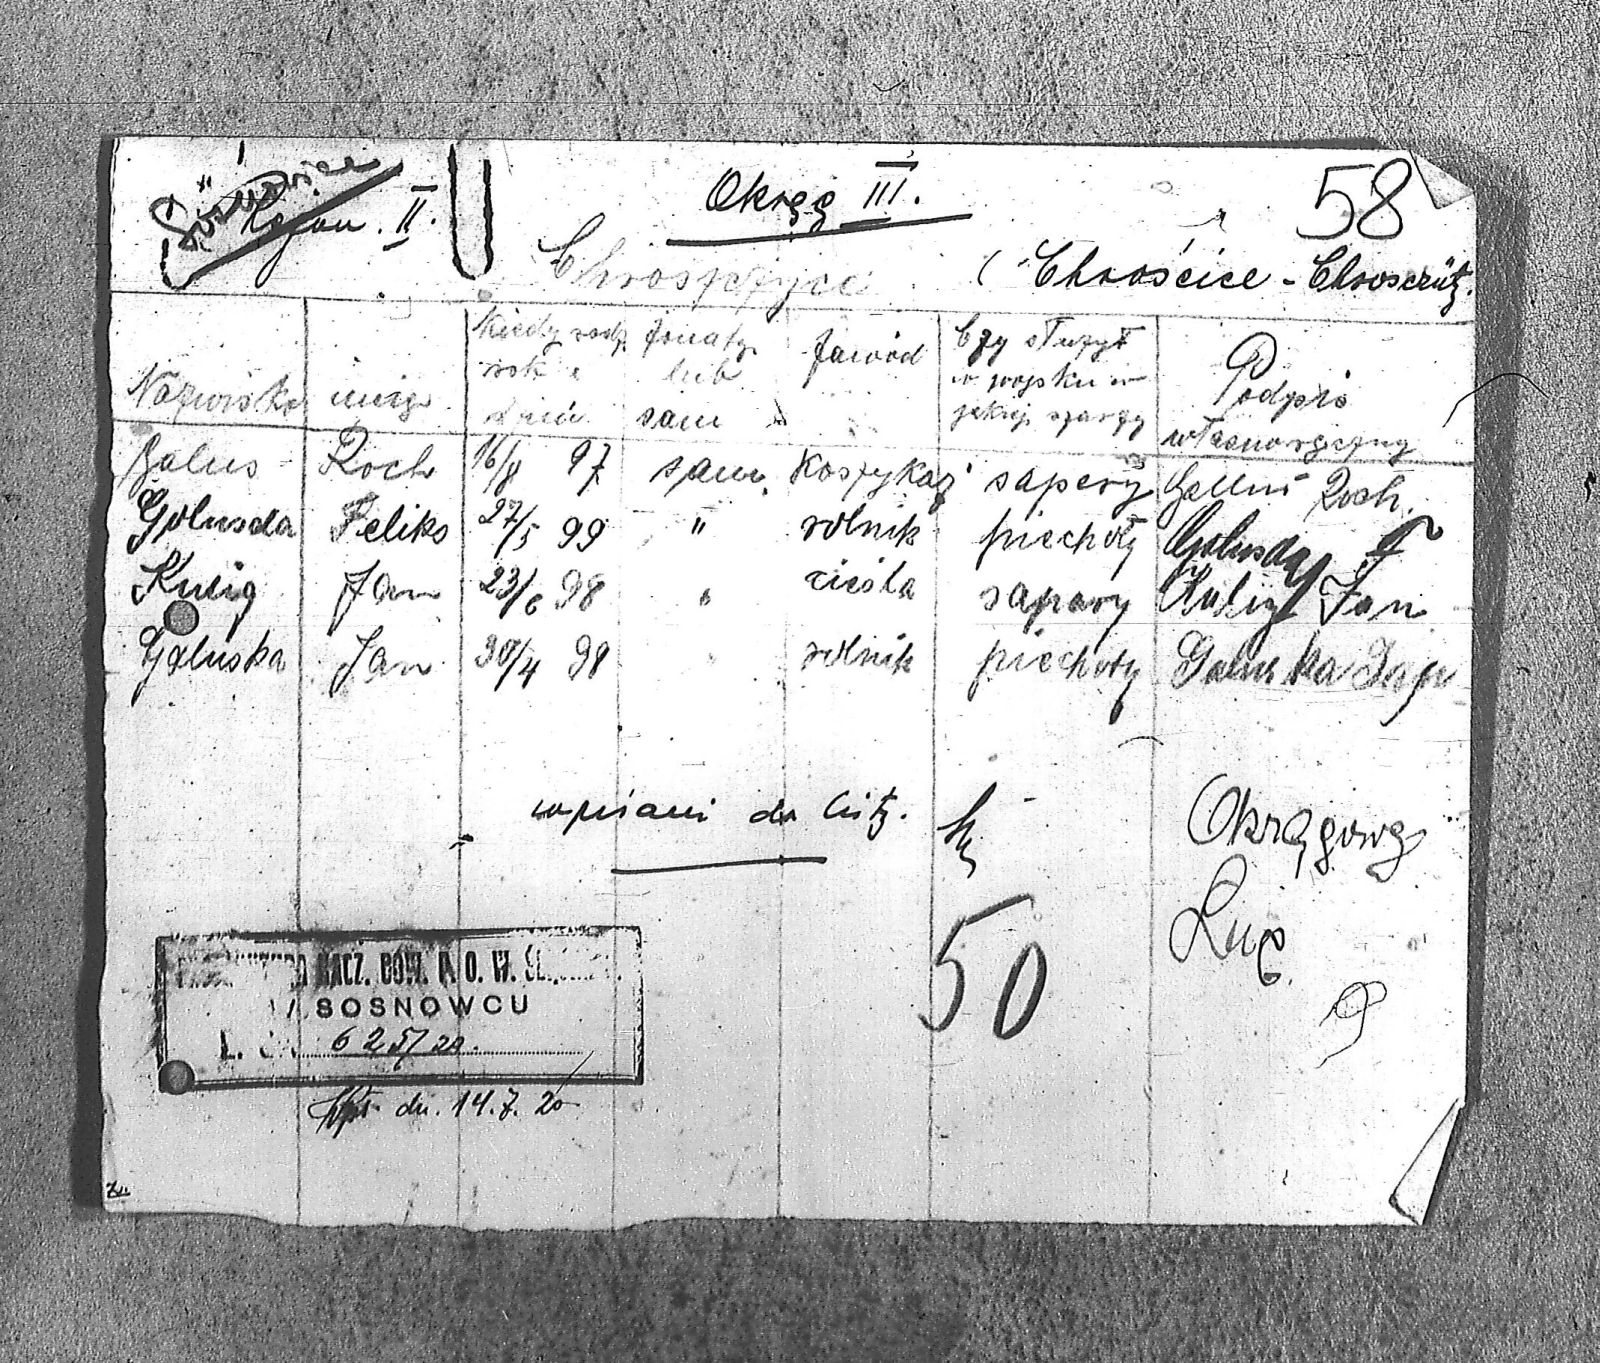 Rejon II.
Okręg III.
58
(Chrościce - Chrosczütz.
Nazwisko imię Kiedy rodz. rok i dzień żonaty lub sam Zawód Czy służył w wojsku w jakiej szarży Podpis własnoręczny
Galus Roch 16/8 97 sam. Koszykarz sapery Gallus Roch.
Golusda Feliks 27/5 99 " rolnik piechoty Golusda F
Kulig Jan 23/6 98 " cieśla sapery Kulig Jan
Galuska Jan 30/4 98 " rolnik piechoty Galuska Jan
wpisani do listy.
Okręgowy
50
NACZ. DOW. P. O. W. ŚL.
W SOSNOWCU
L. 625/20.
dn. 14.7.20